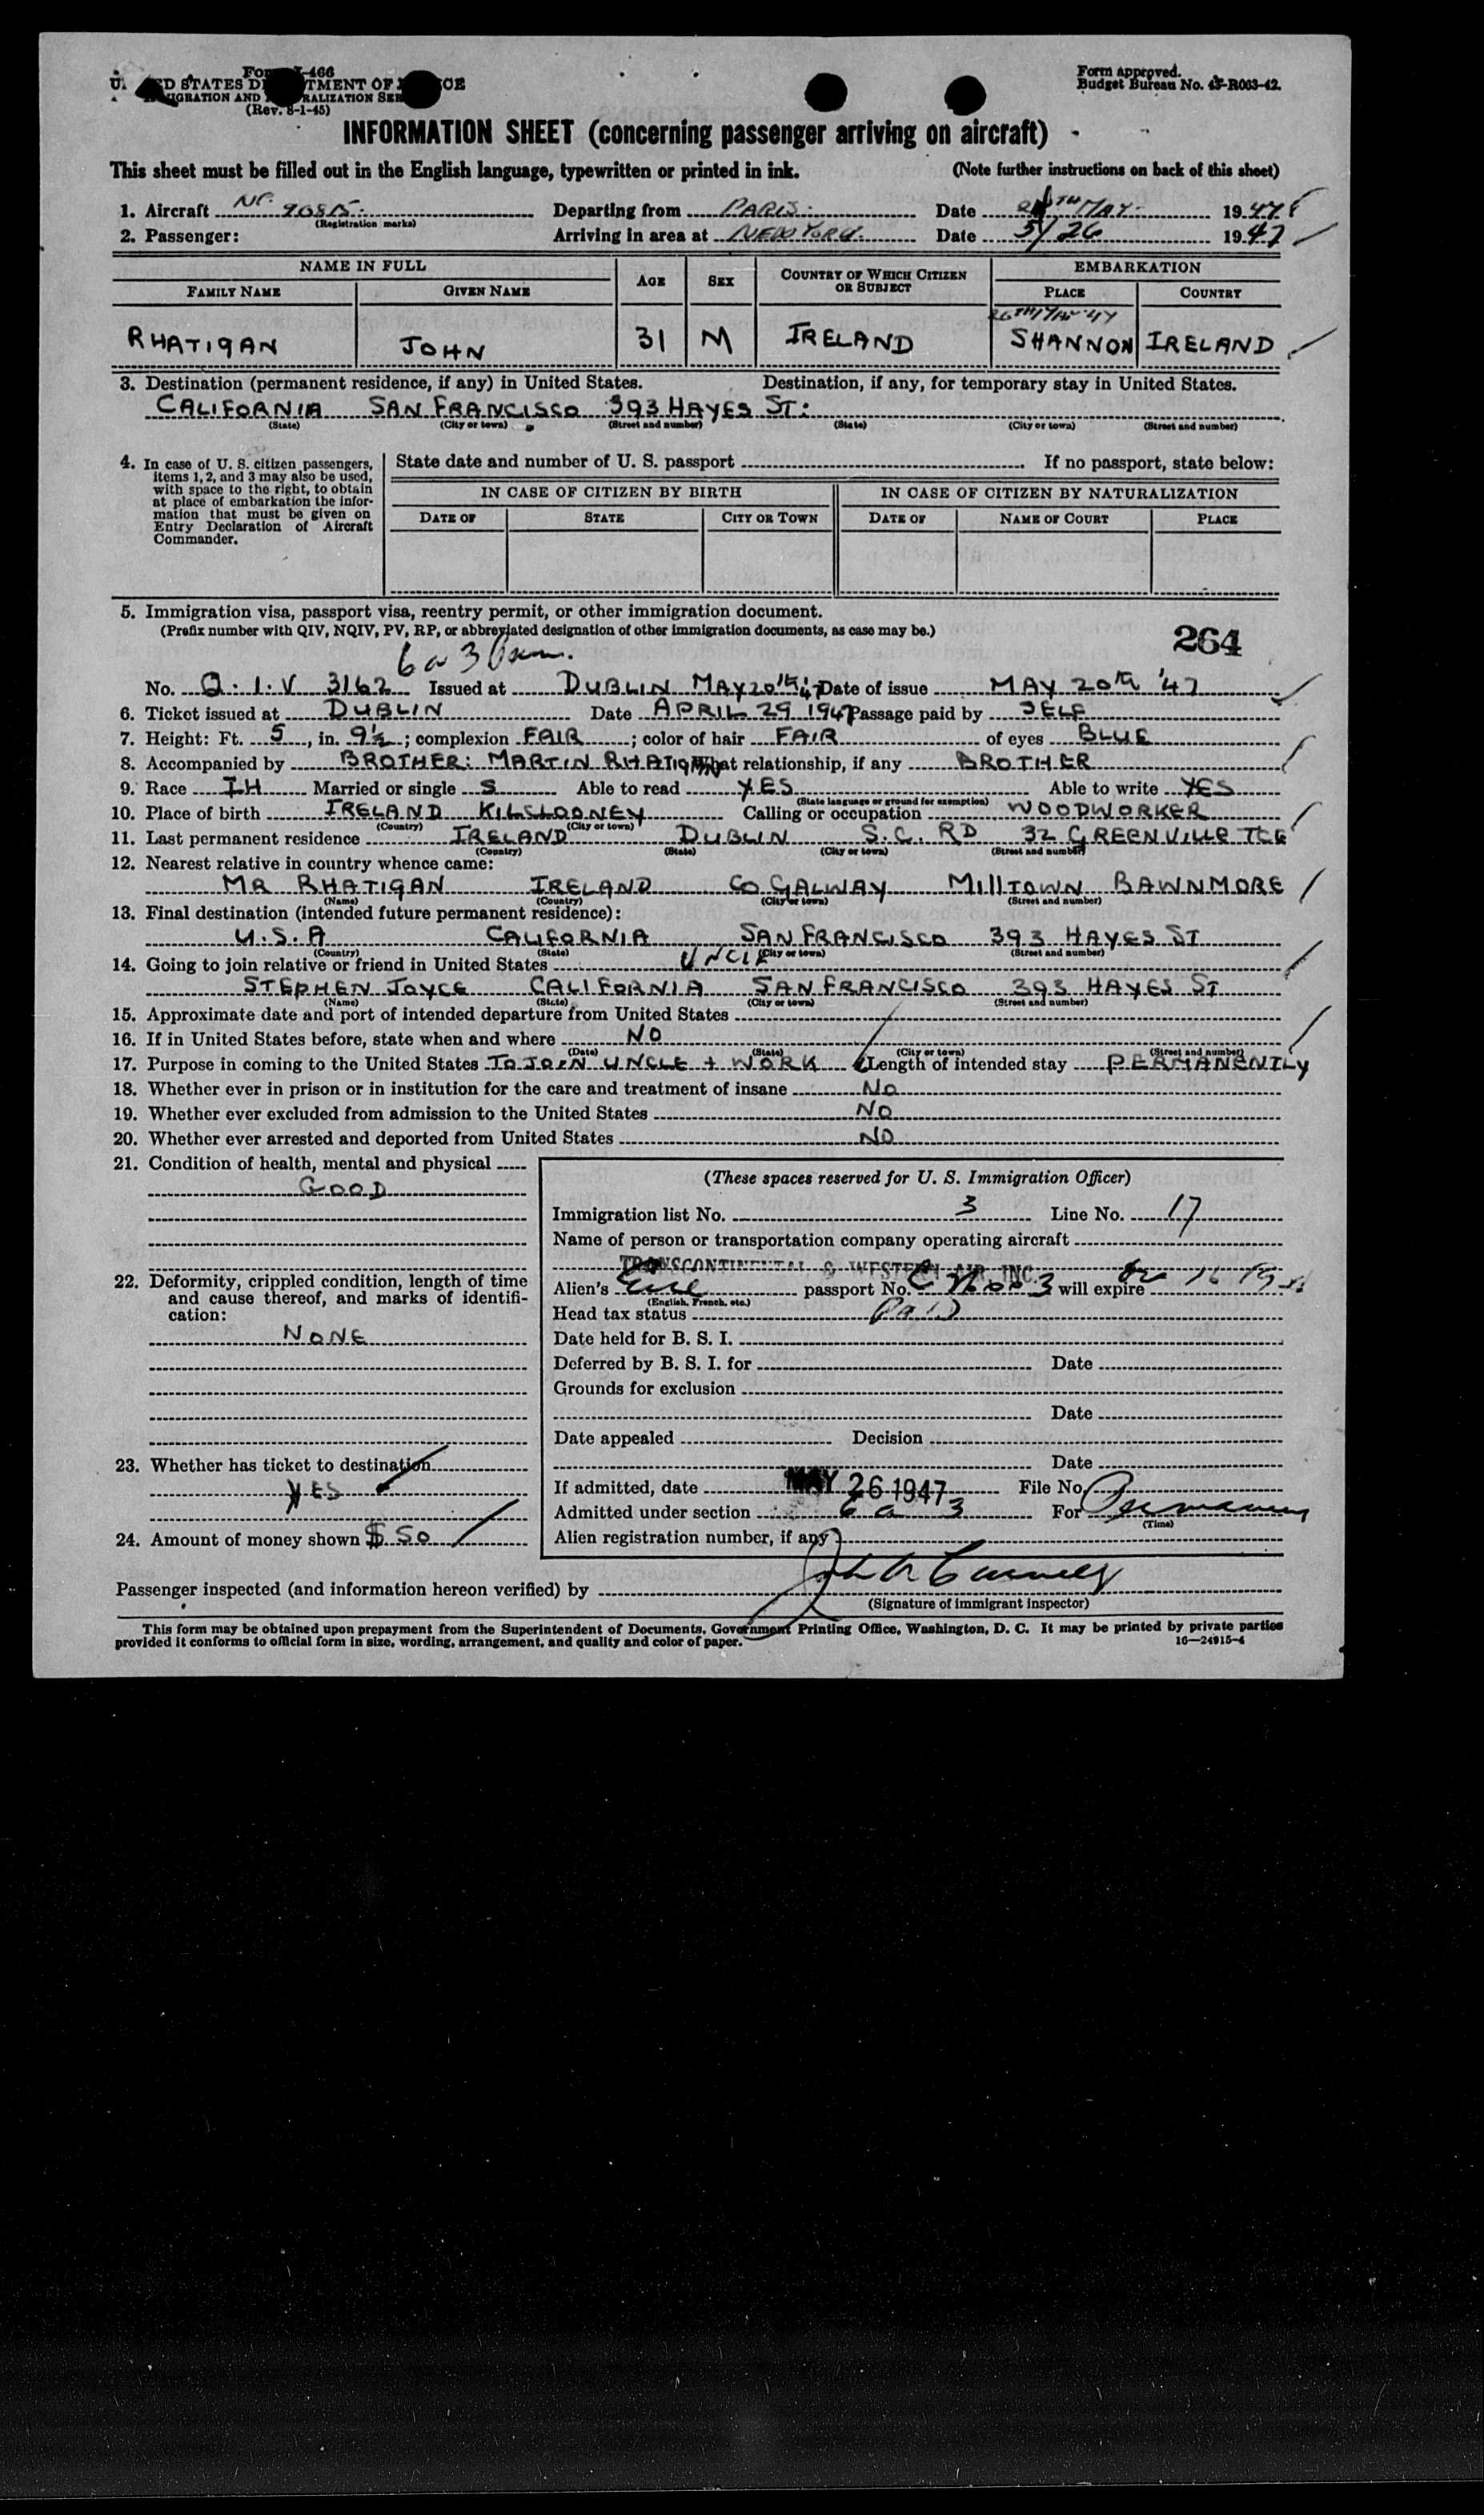 Form I-466
UNITED STATES DEPARTMENT OF JUSTICE
IMMIGRATION AND NATURALIZATION SERVICE
(Rev. 8-1-45)
Form approved.
Budget Bureau No. 43-R063-42.
INFORMATION SHEET (concerning passenger arriving on aircraft)
This sheet must be filled out in the English language, typewritten or printed in ink. (Note further instructions on back of this sheet)
1. Aircraft NC 90815 Departing from PARIS Date 26TH MAY 1947
(Registration marks)
2. Passenger: Arriving in area at NEW YORK Date 5/26 1947
NAME IN FULL AGE SEX COUNTRY OF WHICH CITIZEN OR SUBJECT EMBARKATION
FAMILY NAME GIVEN NAME PLACE COUNTRY
26TH MAY '47
RHATIGAN JOHN 31 M IRELAND SHANNON IRELAND
3. Destination (permanent residence, if any) in United States. Destination, if any, for temporary stay in United States.
CALIFORNIA SAN FRANCISCO 393 HAYES ST:
(State) (City or town) (Street and number) (State) (City or town) (Street and number)
4. In case of U. S. citizen passengers, items 1, 2, and 3 may also be used, with space to the right, to obtain at place of embarkation the information that must be given on Entry Declaration of Aircraft Commander.
State date and number of U. S. passport If no passport, state below:
IN CASE OF CITIZEN BY BIRTH IN CASE OF CITIZEN BY NATURALIZATION
DATE OF STATE CITY OR TOWN DATE OF NAME OF COURT PLACE
5. Immigration visa, passport visa, reentry permit, or other immigration document.
(Prefix number with QIV, NQIV, PV, RP, or abbreviated designation of other immigration documents, as case may be.)
264
6 a 3 Perm.
No. Q.I.V 3162 Issued at DUBLIN MAY 20th '47 Date of issue MAY 20th '47
6. Ticket issued at DUBLIN Date APRIL 29 1947 Passage paid by SELF
7. Height: Ft. 5, in. 9½; complexion FAIR; color of hair FAIR of eyes BLUE
8. Accompanied by BROTHER: MARTIN RHATIGAN What relationship, if any BROTHER
9. Race IH Married or single S Able to read YES Able to write YES
(State language or ground for exemption)
10. Place of birth IRELAND KILCLOONEY Calling or occupation WOODWORKER
(Country) (City or town)
11. Last permanent residence IRELAND DUBLIN S.C. RD 32 GREENVILLE TCE
(Country) (State) (City or town) (Street and number)
12. Nearest relative in country whence came:
MR RHATIGAN IRELAND CO GALWAY MILLTOWN BAWNMORE
(Name) (Country) (City or town) (Street and number)
13. Final destination (intended future permanent residence):
U.S.A CALIFORNIA SAN FRANCISCO 393 HAYES ST
(Country) (State) (City or town) (Street and number)
14. Going to join relative or friend in United States UNCLE
STEPHEN JOYCE CALIFORNIA SAN FRANCISCO 393 HAYES ST
(Name) (State) (City or town) (Street and number)
15. Approximate date and port of intended departure from United States
16. If in United States before, state when and where NO
(Date) (State) (City or town) (Street and number)
17. Purpose in coming to the United States TO JOIN UNCLE + WORK Length of intended stay PERMANENTLY
18. Whether ever in prison or in institution for the care and treatment of insane NO
19. Whether ever excluded from admission to the United States NO
20. Whether ever arrested and deported from United States NO
21. Condition of health, mental and physical
GOOD
22. Deformity, crippled condition, length of time and cause thereof, and marks of identification:
NONE
23. Whether has ticket to destination
YES
24. Amount of money shown $50
(These spaces reserved for U. S. Immigration Officer)
Immigration list No. 3 Line No. 17
Name of person or transportation company operating aircraft
TRANSCONTINENTAL & WESTERN AIR, INC.
Alien's Eire passport No. will expire
(English, French, etc.)
Head tax status Paid
Date held for B. S. I.
Deferred by B. S. I. for Date
Grounds for exclusion
Date
Date appealed Decision
Date
If admitted, date MAY 26 1947 File No.
Admitted under section 6 a 3 For Permanent
(Time)
Alien registration number, if any
Passenger inspected (and information hereon verified) by
(Signature of immigrant inspector)
This form may be obtained upon prepayment from the Superintendent of Documents, Government Printing Office, Washington, D. C. It may be printed by private parties
provided it conforms to official form in size, wording, arrangement, and quality and color of paper. 16—24915-4